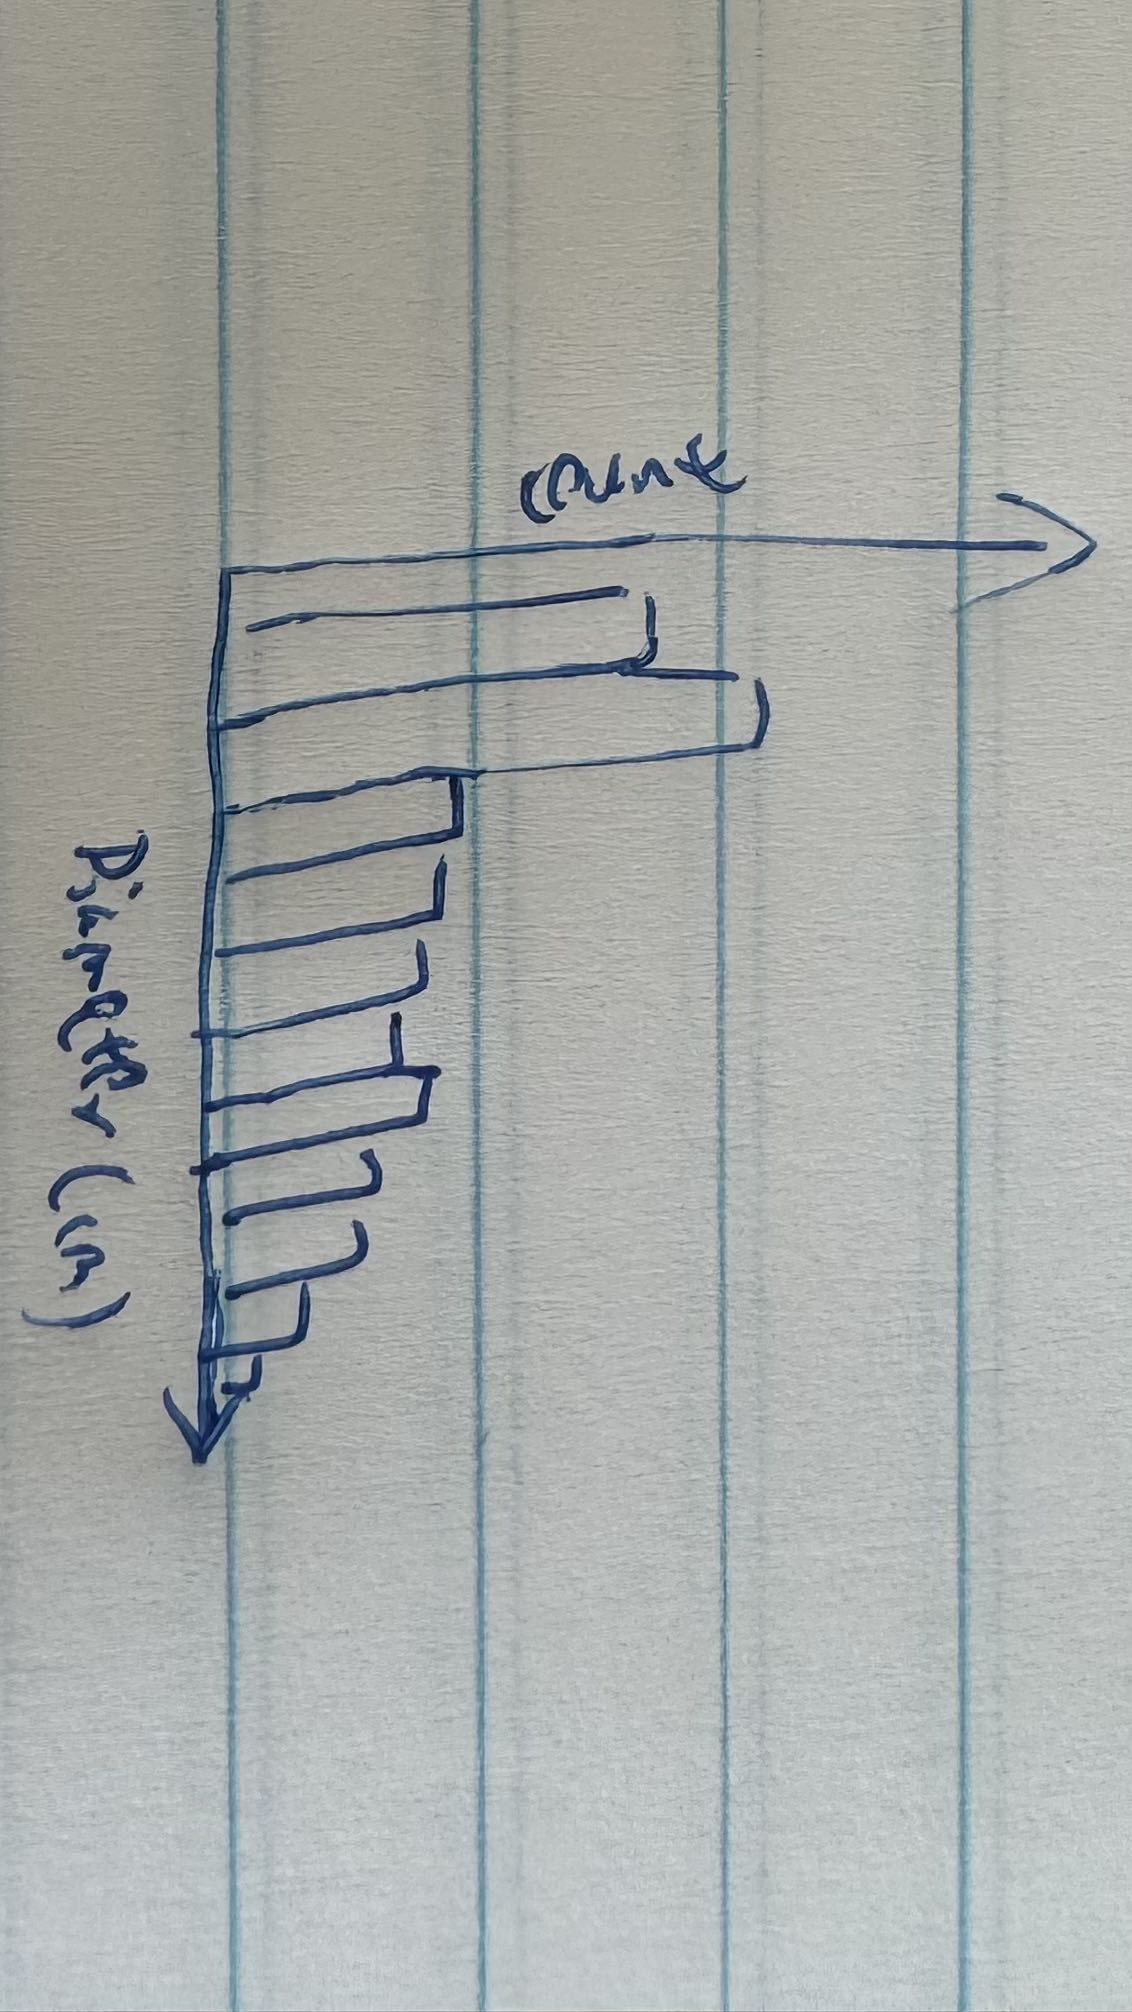 Count
Diameter (m)